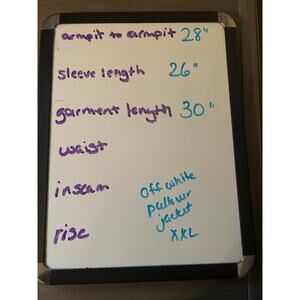 armpit to armpit 28"
sleeve length 26"
garment length 30"
waist
inseam
rise
off white
pullover
jacket
XXL